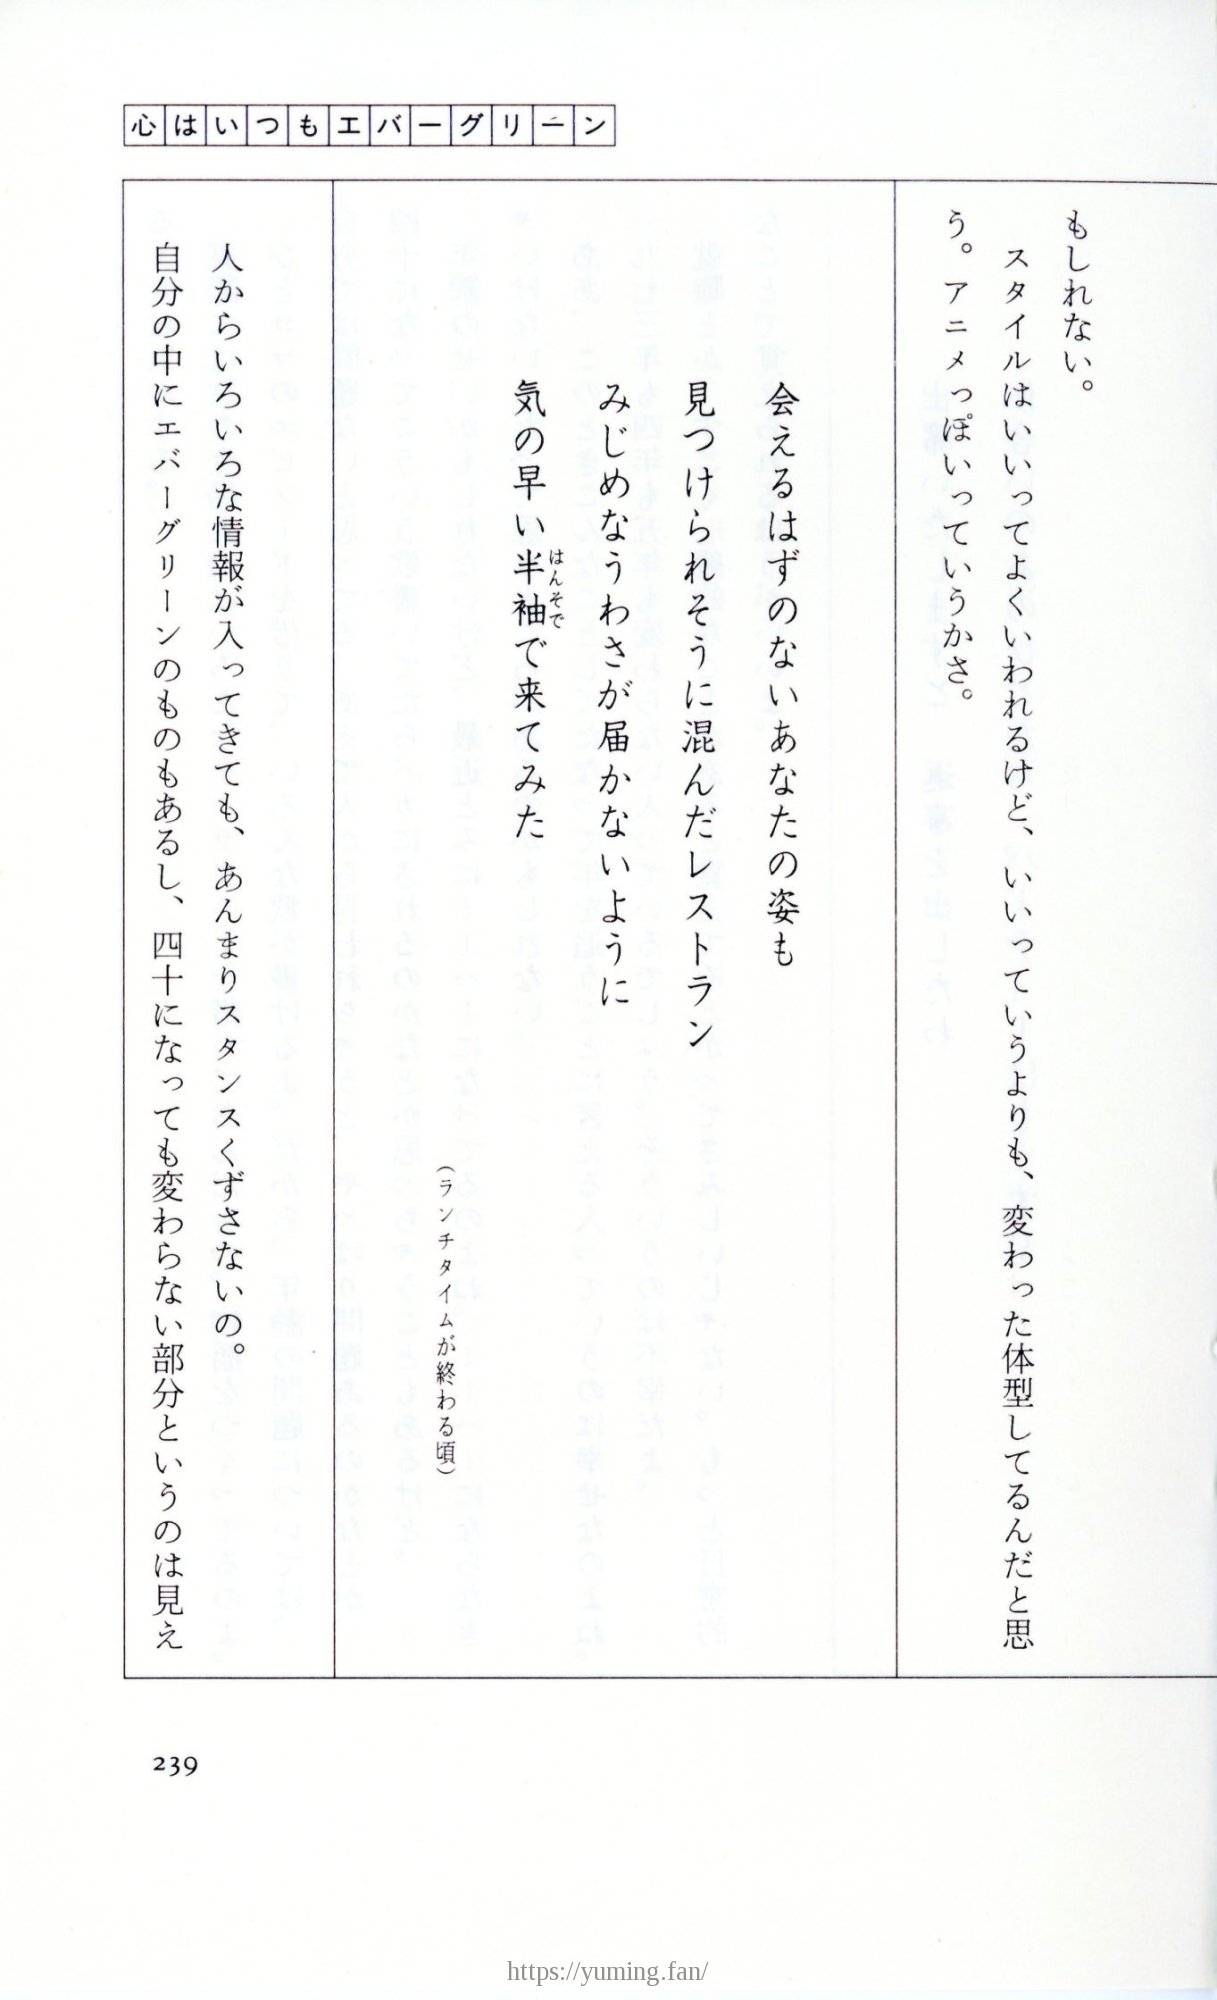 心はいつもエバーグリーン
もしれない。
スタイルはいいってよくいわれるけど、いいっていうよりも、変わった体型してるんだと思
う。アニメっぽいっていうかさ。
会えるはずのないあなたの姿も
見つけられそうに混んだレストラン
みじめなうわさが届かないように
気の早い半袖で来てみた
はんそで
（ランチタイムが終わる頃）
人からいろいろな情報が入ってきても、あんまりスタンスくずさないの。
自分の中にエバーグリーンのものもあるし、四十になっても変わらない部分というのは見え
239
https://yuming.fan/